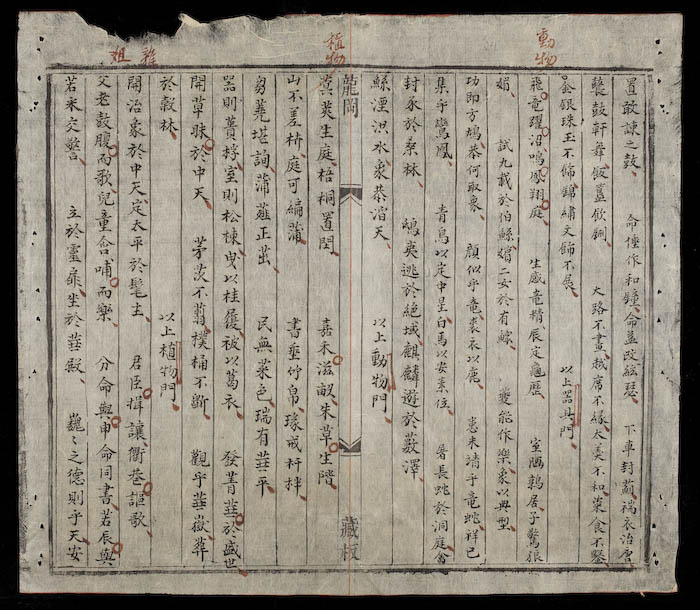 動物
置敢諫之鼓 命倕作和鐘命蓋改絃瑟 下車封薊褐衣治唐
鼗鼓軒舞飯簋飲鉶 大路不畫越席不緣大羹不和粢食不鑿
金銀珠玉不飾錦繡文飾不展 以上器具門
飛竜躍沼鳴鳳翔庭 生感竜精辰定龜歷 室隔鶉居子驚狼
娟 試九載於伯鯀嬪二女於有鰥 夔能作樂象以典型
功即方鳩恭何取象 顏似乎竜裘衣以鹿 恵来靖乎竜蛇祥已
集乎鸞凰 青鳥以定中星白馬以安素位 屠長蛇於洞庭禽
封豕於桑林 鴟夷逃於絶域麒麟遊於藪澤
鯀湮洪水象恭滔天 以上動物門
龍岡 藏板
植物
蓂莢生庭梧桐置閏 嘉禾滋畝朱草生階
山不差枿庭可編蒲 書垂竹帛瑑戒杆柈
芻蕘堪詢蒲正茁 民無菜色瑞有平
器則蕢桴室則松棟曳以桂履被以葛衣 發菁華於盛世
開草昧於中天 茅茨不翦樸桷不斷 觀乎華嶽葬
於穀林 以上植物門
雜
開治象於中天定太平於髦士 君臣揖讓衢巷謳歌
父老鼓腹而歌兒童含哺而樂 分命與申命同書若辰與
若来交警 立於靈扉坐於華殿 巍々之德則乎天安